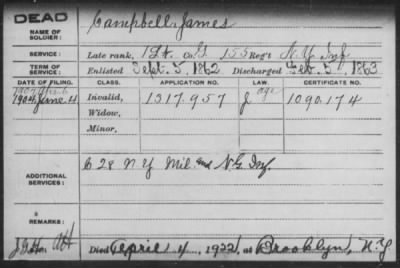 DEAD
NAME OF SOLDIER: Campbell, James
SERVICE: Late rank, 1 Lt. Co. G 155 Reg't N.Y. Inf
TERM OF SERVICE: Enlisted Sept. 5, 1862 Discharged Feb. 5, 1863
DATE OF FILING. CLASS. APPLICATION NO. LAW. CERTIFICATE NO.
1904 June 4 Invalid, 1317.957 J age 1090.174
Widow,
Minor,
ADDITIONAL SERVICES: C 28 N Y Mil and N G Inf.
REMARKS:
Died April 4, 1922, at Brooklyn, N.Y.